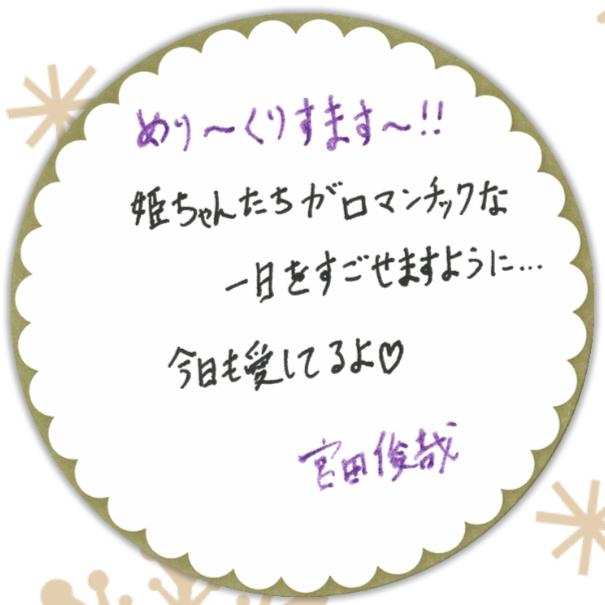 めり～くりすます～!!
姫ちゃんたちがロマンチックな
一日をすごせますように…
今日も愛してるよ♡
宮田俊哉